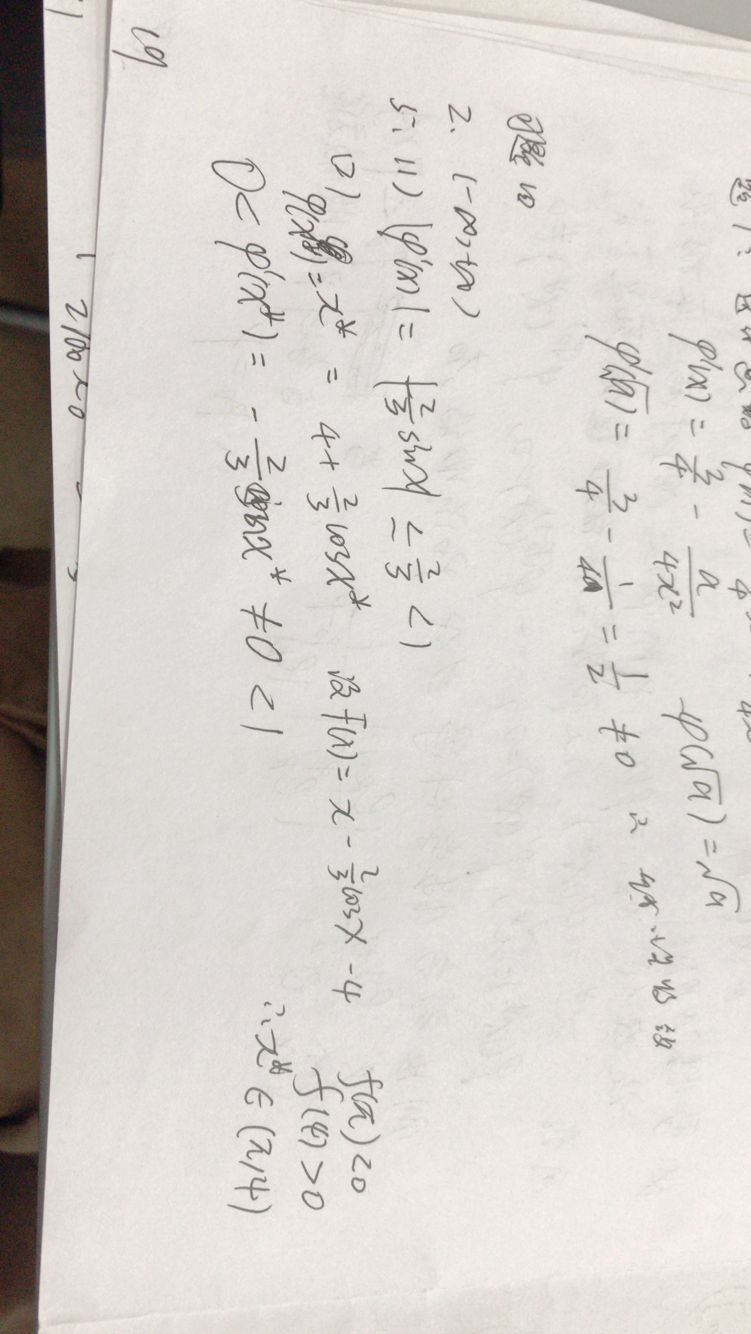 φ'(x) = 3/4 - a/4x² φ(√a) = √a
φ'(√a) = 3/4 - 1/4 = 1/2 ≠ 0
习题
2. (-∞,+∞)
5. (1) |φ'(x)| = |2/3 sinx| ≤ 2/3 < 1
φ(x*) = x* = 4 + 2/3 cosx* 设 f(x) = x - 2/3 cosx - 4
f(π) < 0
f(4) > 0
0 < φ'(x*) = - 2/3 sinx* ≠ 0 < 1
∴ x* ∈ (π, 4)